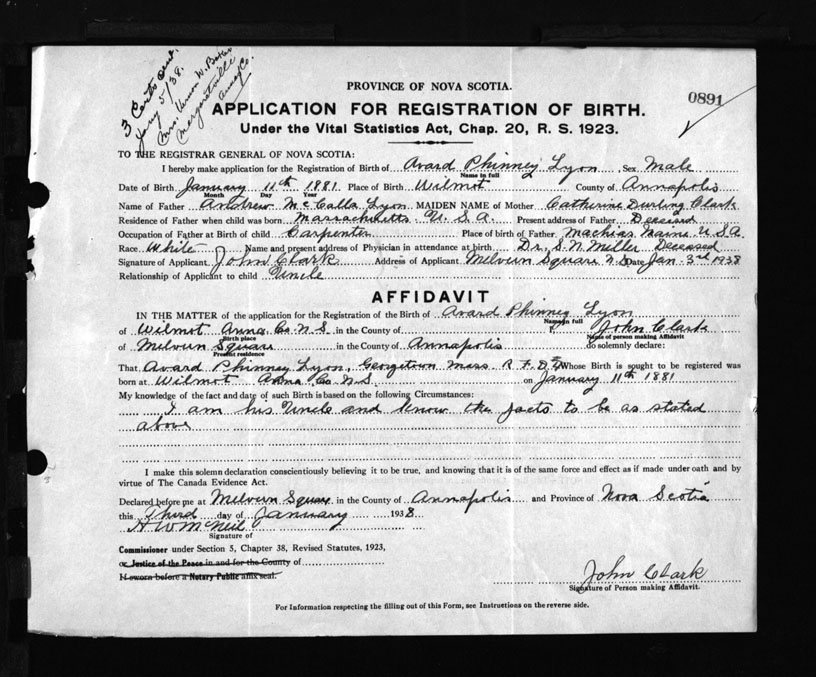 3 Certs sent.
Jany 5/38.
Mrs. Vernon W. Baker
Margaretville
Anna. Co.
PROVINCE OF NOVA SCOTIA.
0891
APPLICATION FOR REGISTRATION OF BIRTH.
Under the Vital Statistics Act, Chap. 20, R. S. 1923.
TO THE REGISTRAR GENERAL OF NOVA SCOTIA:
I hereby make application for the Registration of Birth of Avard Phinney Lyon Sex Male
Name in full
Date of Birth January 11th 1881 Place of Birth Wilmot County of Annapolis
Month Day Year
Name of Father Andrew McCalla Lyon MAIDEN NAME of Mother Catherine Durling Clark
Residence of Father when child was born Massachusetts U.S.A. Present address of Father Deceased
Occupation of Father at Birth of child Carpenter Place of birth of Father Machias Maine U.S.A.
Race White Name and present address of Physician in attendance at birth Dr. S. N. Miller Deceased
Signature of Applicant John Clark Address of Applicant Melvern Square N.S. Date Jan. 3rd 1938
Relationship of Applicant to child Uncle
AFFIDAVIT
IN THE MATTER of the application for the Registration of the Birth of Avard Phinney Lyon
Name in full
of Wilmot Anna. Co. N.S. in the County of I, John Clark
Birth place Name of person making Affidavit
of Melvern Square in the County of Annapolis do solemnly declare:
Present residence
That Avard Phinney Lyon, Georgetown Mass R.F.D. Whose Birth is sought to be registered was
born at Wilmot Anna. Co. N.S. on January 11th 1881
My knowledge of the fact and date of such Birth is based on the following Circumstances:
I am his Uncle and know the facts to be as stated
above
I make this solemn declaration conscientiously believing it to be true, and knowing that it is of the same force and effect as if made under oath and by
virtue of The Canada Evidence Act.
Declared before me at Melvern Square in the County of Annapolis and Province of Nova Scotia
this Third day of January 1938
H W McNeil
Signature of
Commissioner under Section 5, Chapter 38, Revised Statutes, 1923,
or Justice of the Peace in and for the County of
If sworn before a Notary Public affix seal.
John Clark
Signature of Person making Affidavit.
For Information respecting the filling out of this Form, see Instructions on the reverse side.